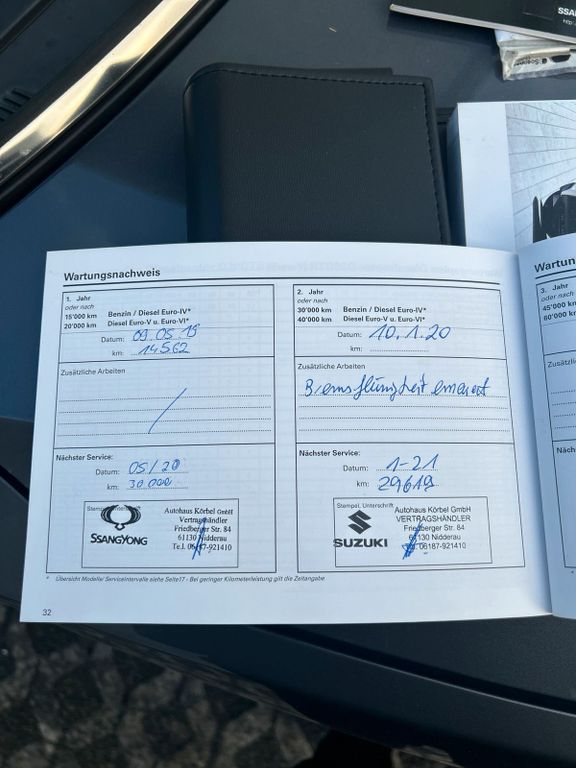 SSA
Wartungsnachweis
1. Jahr
oder nach
15'000 km Benzin / Diesel Euro-IV*
20'000 km Diesel Euro-V u. Euro-VI*
Datum: 09.05.19
km: 14562
Zusätzliche Arbeiten
Nächster Service:
Datum: 05/20
km: 30.000
Stempel, Unterschrift
SSANGYONG
Autohaus Körbel GmbH
Vertragshändler
Friedberger Str. 84
61130 Nidderau
Tel. 06187-921410
2. Jahr
oder nach
30'000 km Benzin / Diesel Euro-IV*
40'000 km Diesel Euro-V u. Euro-VI*
Datum: 10.1.20
km:
Zusätzliche Arbeiten
Bremsflüssigkeit erneuert
Nächster Service:
Datum: 1-21
km: 29619
Stempel, Unterschrift
SUZUKI
Autohaus Körbel GmbH
VERTRAGSHÄNDLER
Friedberger Str. 84
61130 Nidderau
Tel. 06187-921410
* Übersicht Modelle/ Serviceintervalle siehe Seite17 - Bei geringer Kilometerleistung gilt die Zeitangabe
32
Wartun
3. Jahr
oder nach
45'000 km
60'000 km
Zusätzliche
Nächster S